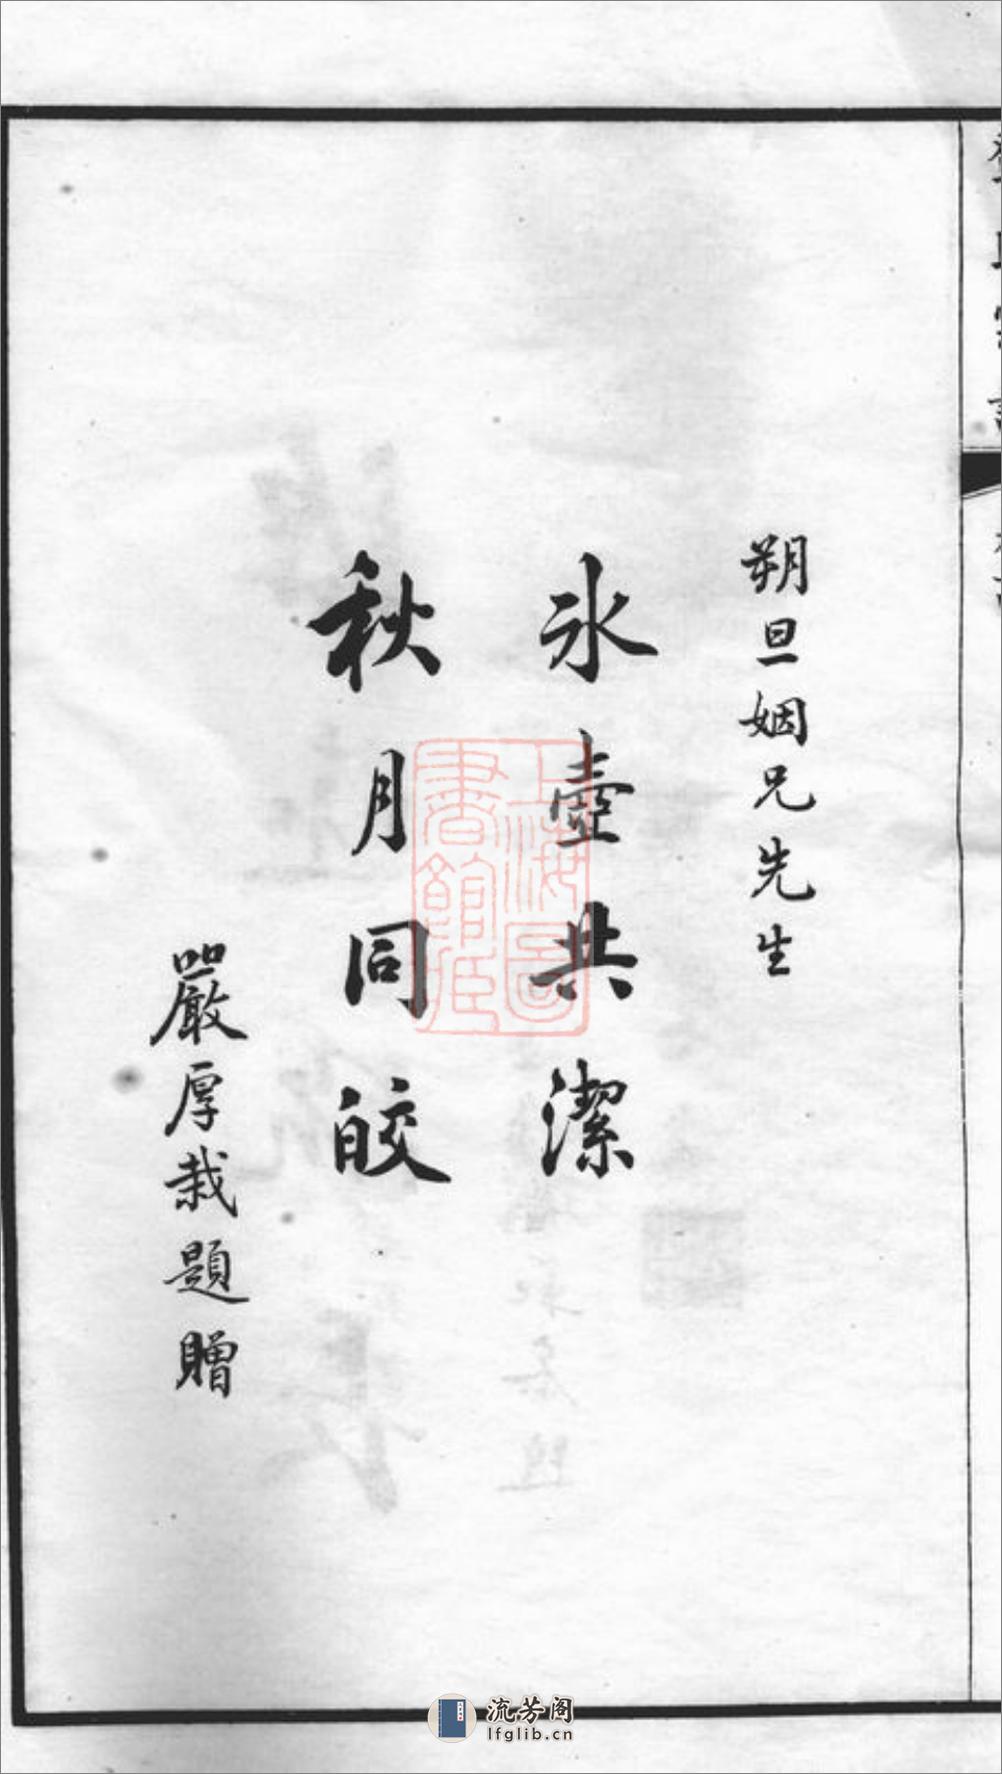 朔旦姻兄先生
氷壺共潔
秋月同皎
嚴厚栽題贈
上海圖
書館藏
流芳阁
lfglib.cn